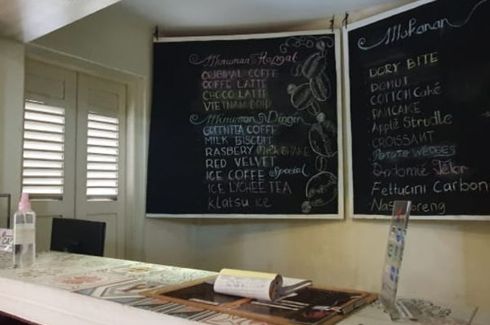 Minuman Hangat
ORIGINAL COFFE
COFFE LATTE
CHOCO LATTE
VIETNAM
Minuman Dingin
COFFE
MILK BISCUIT
RASBERY MILKSHAKE
RED VELVET
ICE COFFEE Special
ICE LYCHEE TEA
Klatsu ICE
Makanan
DORY BITE
DONUT
COTTON Cake
PANCAKE
Apple Strudle
CROISSANT
Potato WEDGES
Indomie Telor
Fettucini Carbon
Nas oreng